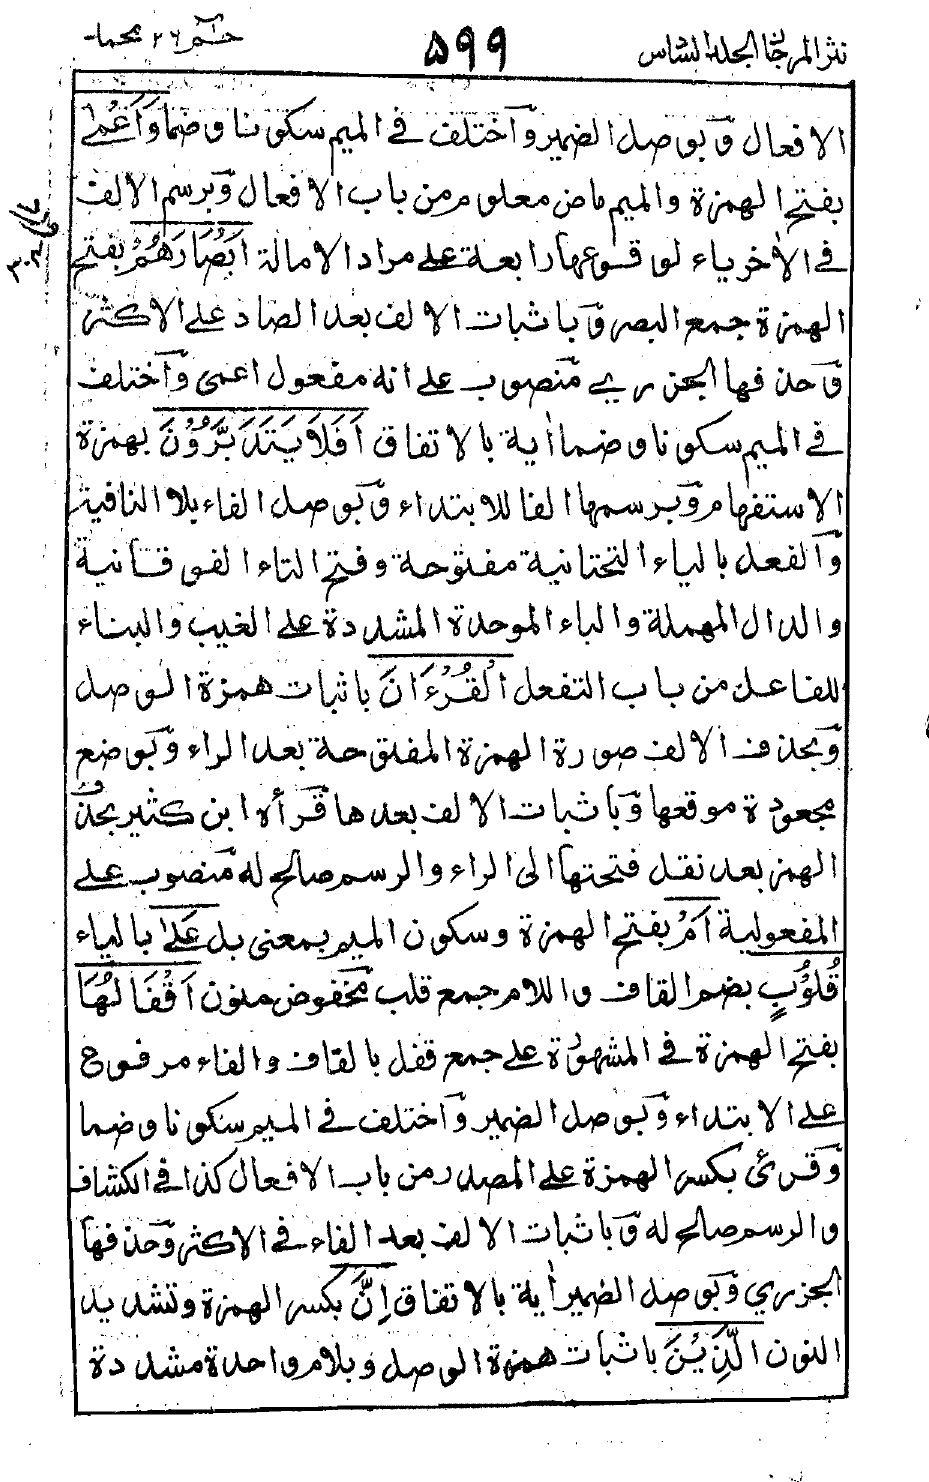 نثر المرجان الجلد السادس ٥٩٩ حٰم ٢٦ محمد
الافعال وَبوصل الضمير وَاختلف في الميم سكونا وضما وَاَعْمٰى
بفتح الهمزة والميم ماض معلوم من باب الافعال وَبرسم الالف
في الاٰخر ياء لوقوعها رابعة على مراد الامالة اَبْصَارَهُمْ بفتح
الهمزة جمع البصر وَباثبات الالف بعد الصاد على الاكثر
وَحذفها الجزري مَنصوب على انه مفعول اعمى وَاختلف
في الميم سكونا وضما اٰية بالاتفاق اَفَلَا يَتَدَبَّرُوْنَ بهمزة
الاستفهام وَبرسمها الفا للابتداء وَبوصل الفاء بلا النافية
وَالفعل بالياء التحتانية مفتوحة وفتح التاء الفوقانية
والدال المهملة والباء الموحدة المشددة على الغيب والبناء
للفاعل من باب التفعل الْقُرْءَانَ باثبات همزة الوصل
وَبحذف الالف صورة الهمزة المفتوحة بعد الراء وَبوضع
مجعودة موقعها وَباثبات الالف بعدها قَرأه ابن كثير بحذف
الهمز بعد نقل فتحتها الى الراء والرسم صالح له مَنصوب على
المفعولية اَمْ بفتح الهمزة وسكون الميم بمعنى بل عَلٰى بالياء
قُلُوْبٍ بضم القاف واللام جمع قلب مَخفوض منون اَقْفَالُهَا
بفتح الهمزة في المشهورة على جمع قفل بالقاف والفاء مرفوع
على الابتداء وَبوصل الضمير وَاختلف في الميم سكونا وضما
وَقرئ بكسر الهمزة على المصدر من باب الافعال كذا في الكشاف
والرسم صالح له وَباثبات الالف بعد الفاء في الاكثر وَحذفها
الجزري وَبوصل الضمير اٰية بالاتفاق اِنَّ بكسر الهمزة وتشديد
النون الَّذِيْنَ باثبات همزة الوصل وبلام واحدة مشددة